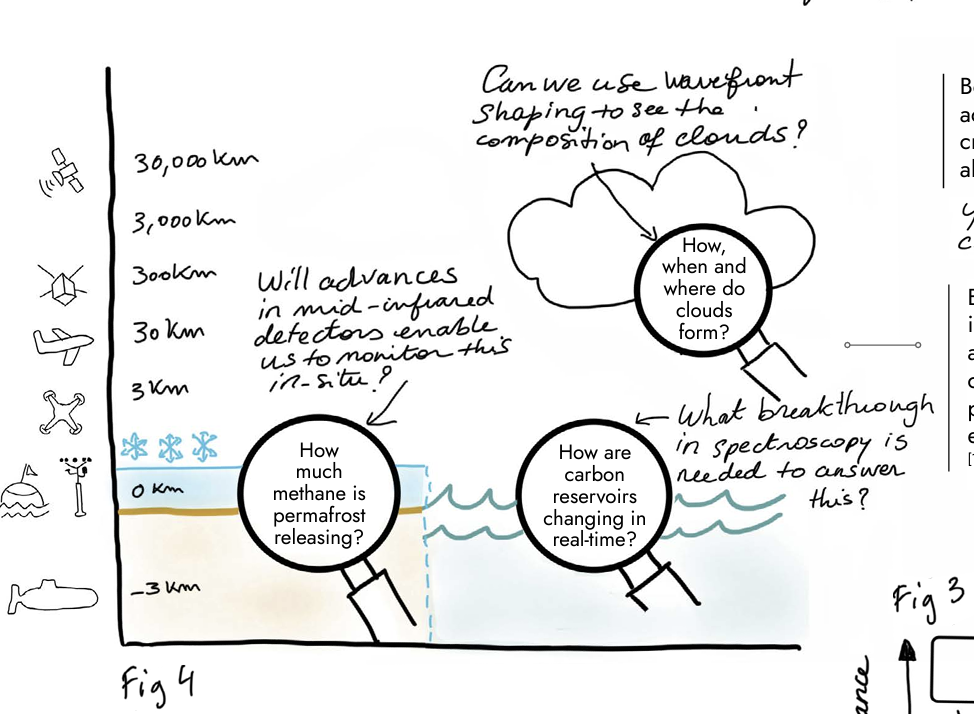 Can we use wavefront
shaping to see the
composition of clouds?
30,000 Km
3,000 Km
300 Km
30 Km
3 Km
0 Km
-3 Km
How,
when and
where do
clouds
form?
Will advances
in mid-infrared
detectors enable
us to monitor this
in-situ?
How
much
methane is
permafrost
releasing?
What breakthrough
in spectroscopy is
needed to answer
this?
How are
carbon
reservoirs
changing in
real-time?
Fig 4
Fig 3